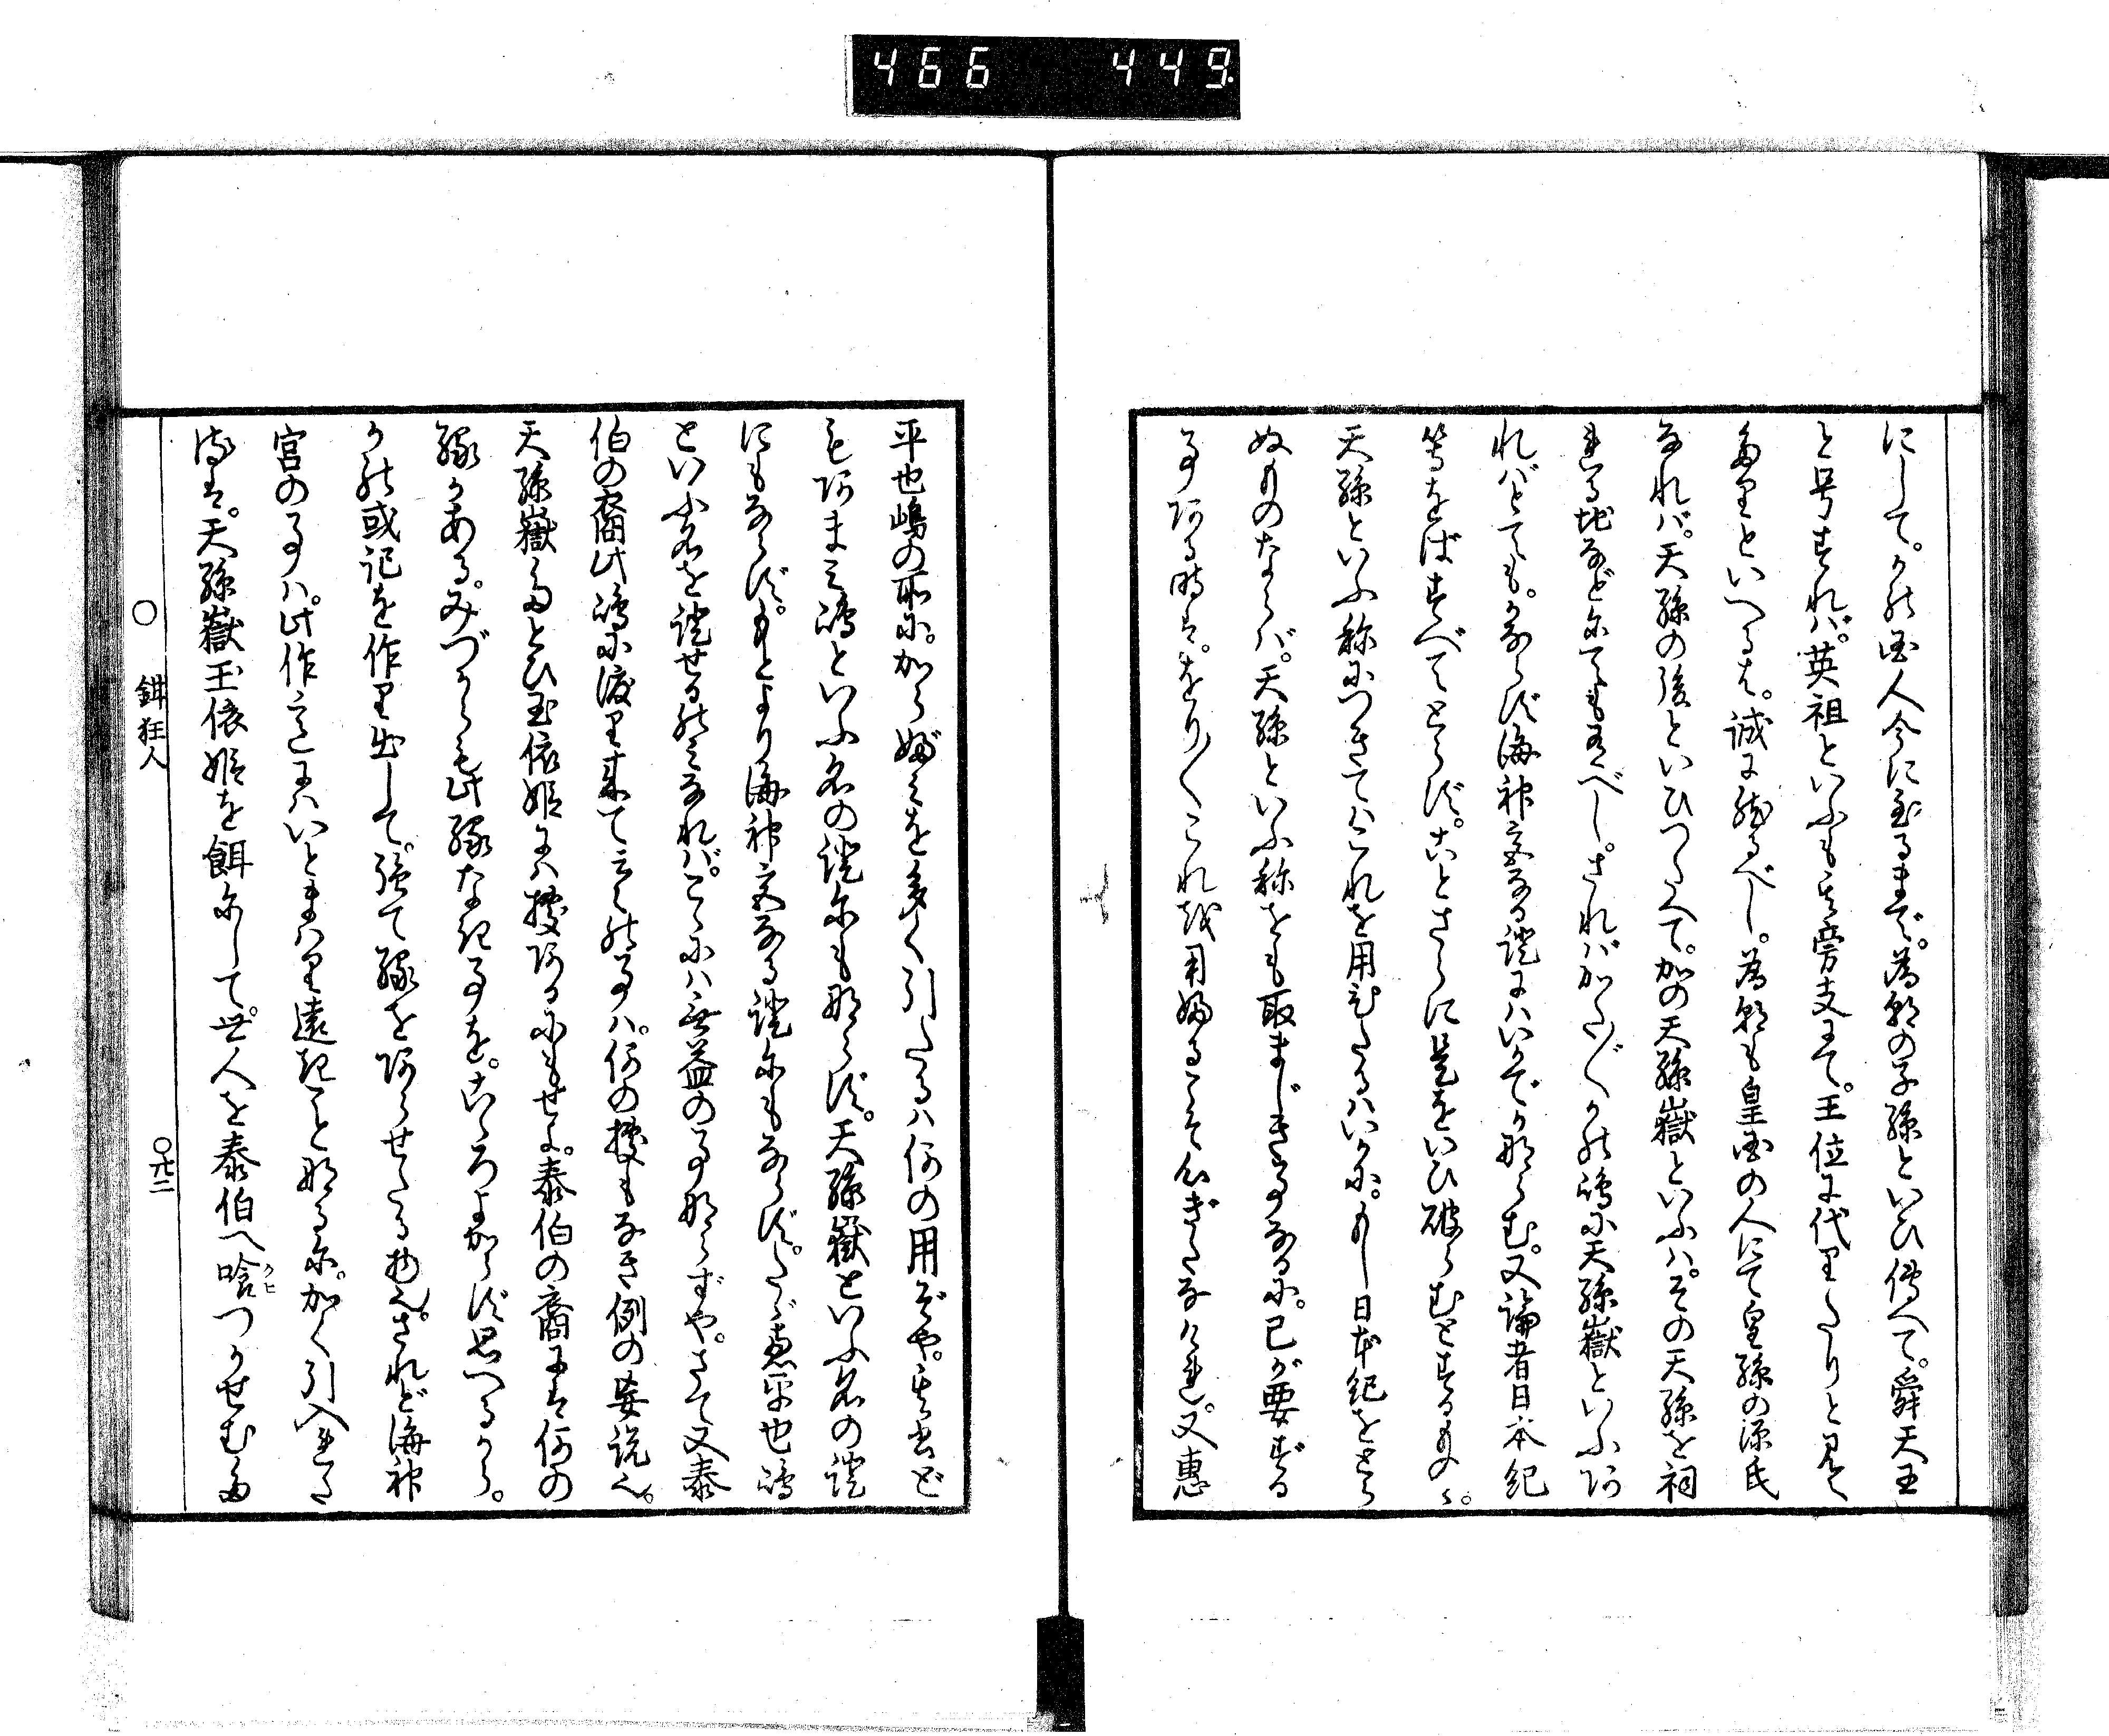 466 449
にして。かの国人今に至るまで。為朝の子孫といひ傳へて。舜天王
と号すれバ。英祖といふも其旁支にて。王位に代りたりと見え
たりといへるは。誠に然るべし。為朝も皇国の人にて皇孫の源氏
なれバ。天孫の後といひつたへて。かの天孫嶽といふハ。その天孫を祠
れる地などにても有べし。されバかた〲かの嶋に天孫嶽といふ阿
れバとても。かならず海神宮なる證にハいかでか那らむ。又論者日本紀
等をばすべてとらず。ことさらに是をいひ破らむとするもの〻。
天孫といふ称につきてハこれを用ひたるハいかに。もし日本紀をとら
ぬものならバ。天孫といふ称をも取まじき事なるに。己が要ずる
事阿る時は。をり〱これを用ふるこそ心ぎたなけれ。又惠
平也嶋の所に。から婦みを多く引たるハ何の用ぞや。其書ど
も阿まみ嶋といふ名の證にも那らず。天孫嶽といふ名の證
にもならず。もとより海神宮なる證にもならず。たゞ惠平也嶋
といふ名を證せるのみなれバ。こゝにハ無益の事那らずや。さて又泰
伯の裔此嶋に渡り来て云々の事ハ。何の據もなき例の妄説也。
天孫嶽たとひ玉依姫にハ據阿るにもせよ。泰伯の裔には何の
縁かある。みづからも此縁なき事を。こゝろよからず思へるから。
かの或記を作り出して。強て縁を阿らせたる物也。されど海神
宮の事ハ。此作言にハいとまハり遠きこと那るに。かく引入れた
るは。天孫嶽玉依姫を餌にして。世人を泰伯へ喰クヒつかせむた
○ 鉗狂人 ○廿二